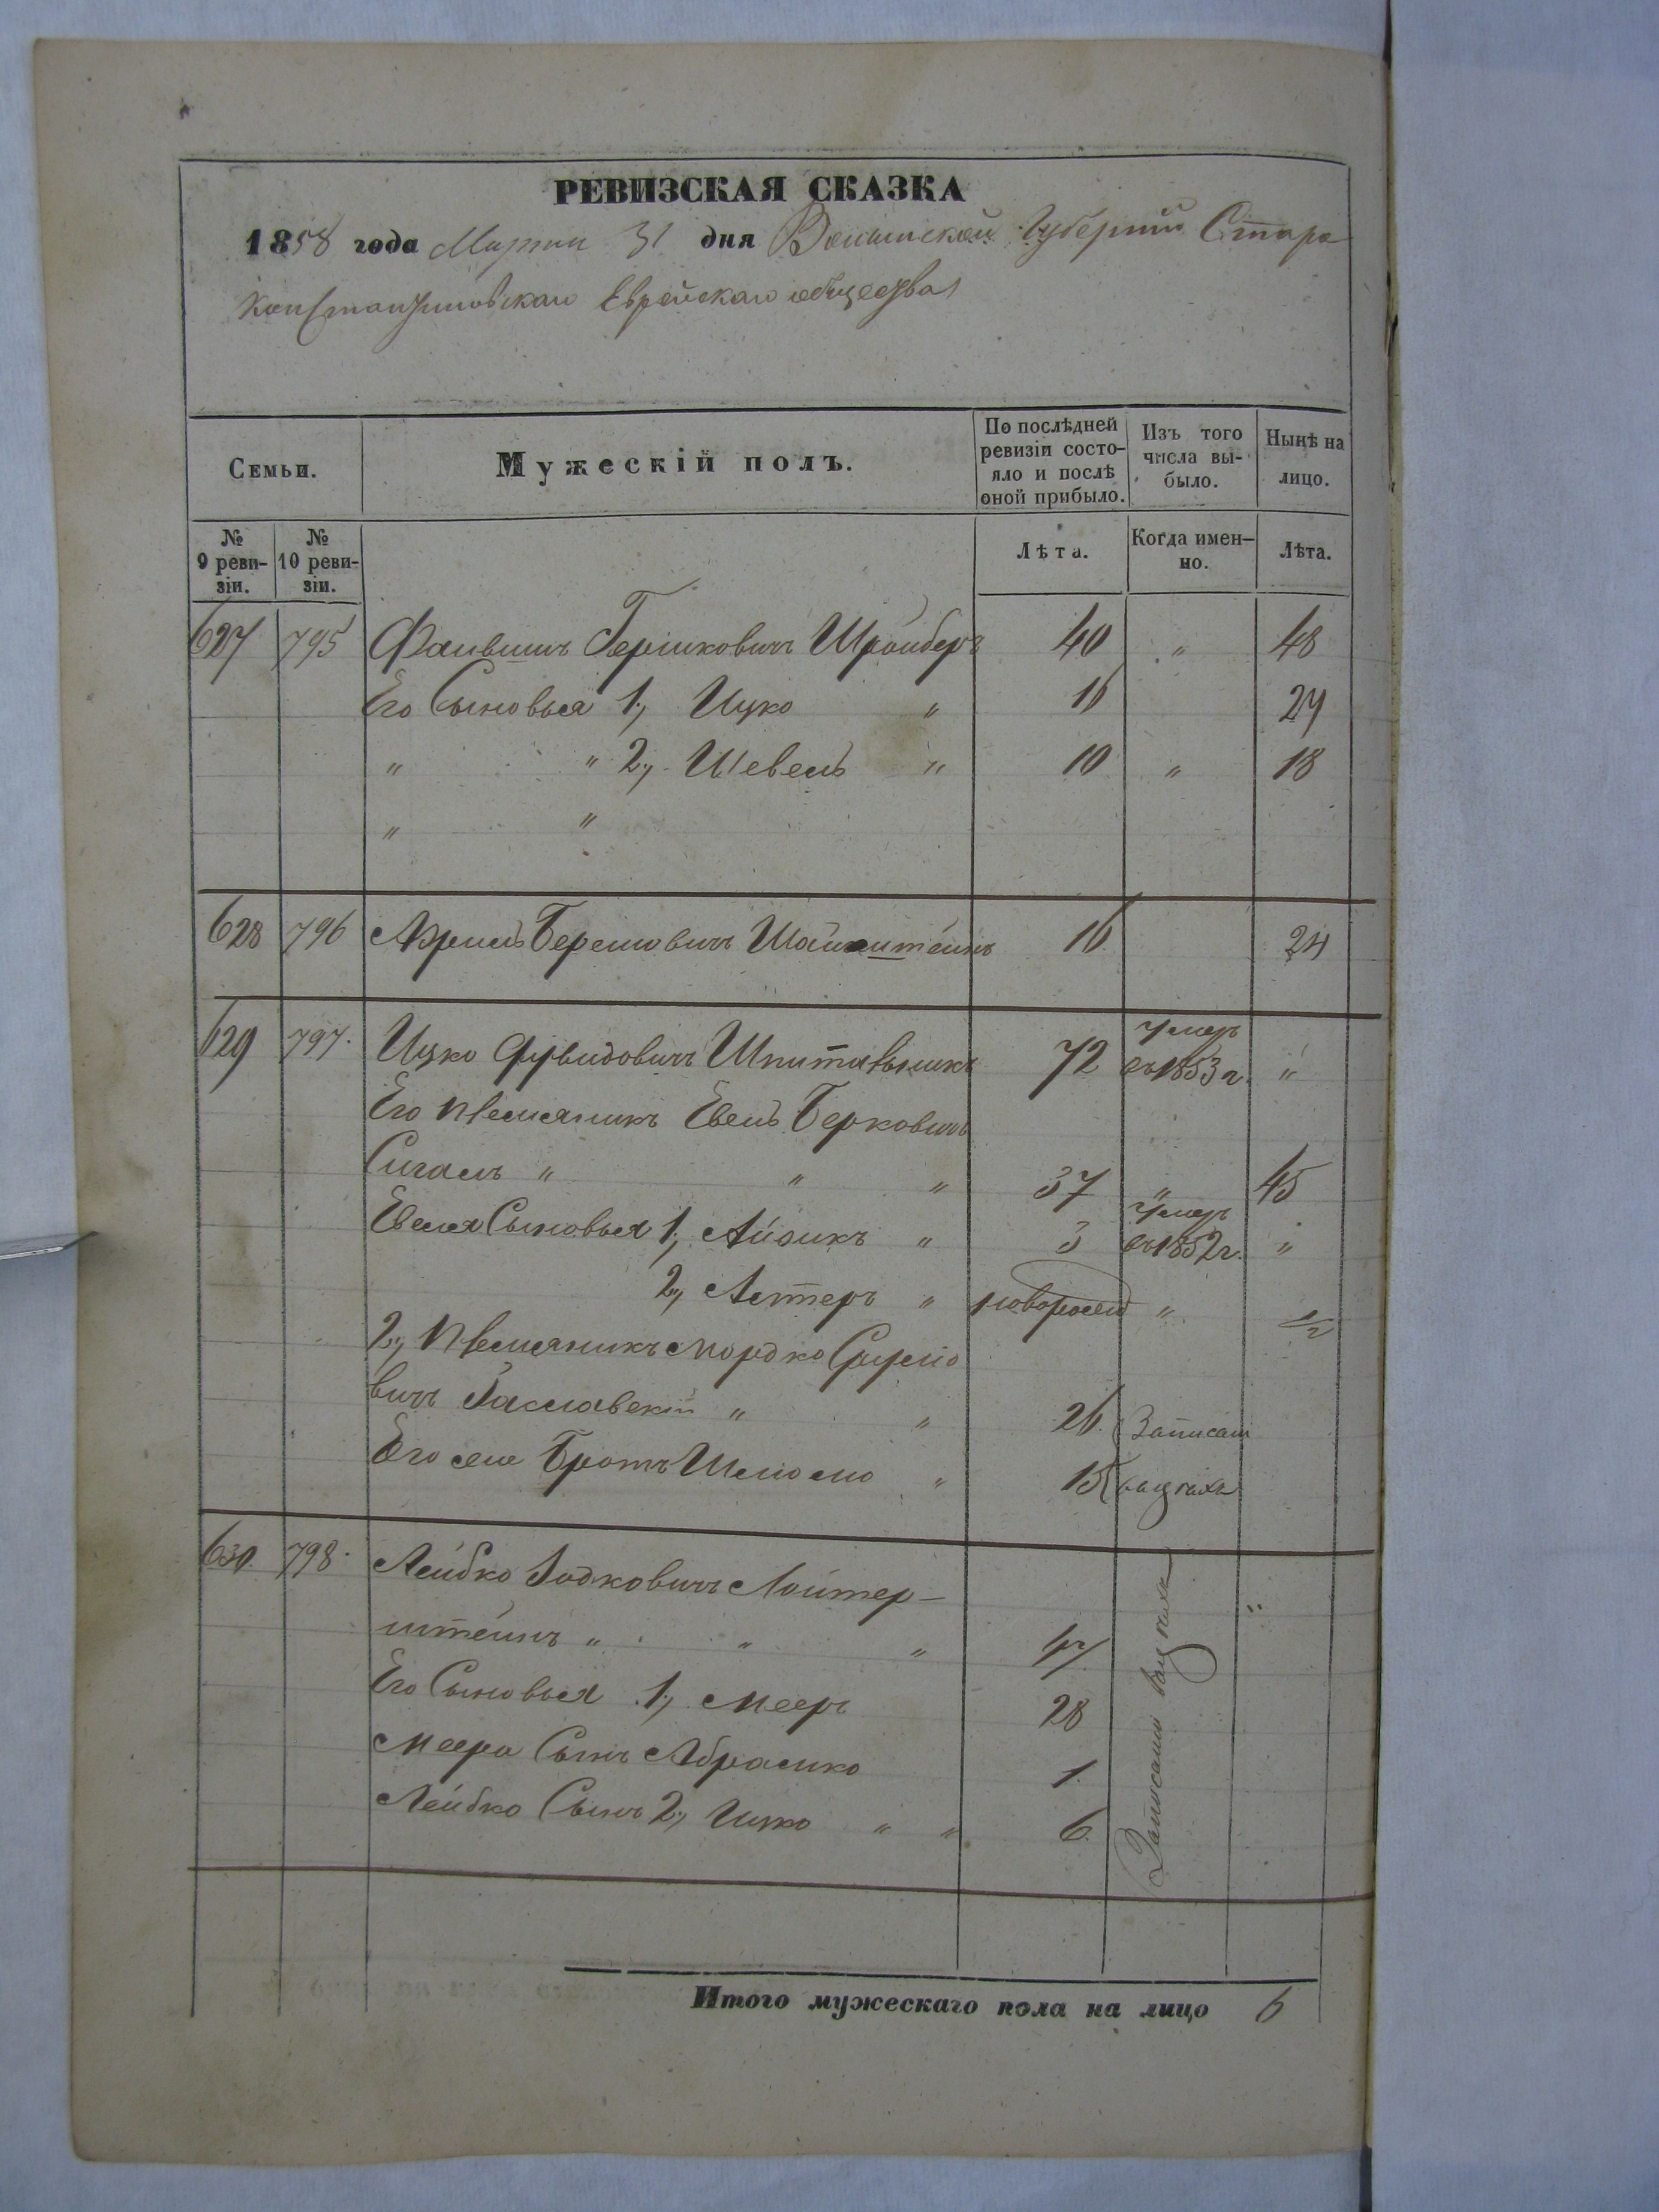 РЕВИЗСКАЯ СКАЗКА
1858 года Марта 31 дня Волынской Губернии Старо
Константиновскаго Еврейскаго общества
Семьи.
Мужескій полъ.
По послѣдней ревизіи состо-яло и послѣ оной прибыло.
Изъ того числа вы-было.
Нынѣ на лицо.
№ 9 реви-зіи.
№ 10 реви-зіи.
Лѣта.
Когда имен-но.
Лѣта.
627 795 Файвишъ Гершковичъ 40 " 48
Его Сыновья 1, Ицко " 16
" " 2, Шевель " 10 " 18
" "
628 796 Берешовичъ 16 24
629 797. Ицко 72 Умеръ въ 1853 г. "
Его племяникъ Евель Берковичъ
Сигалъ " " " 37 " 45
Евеля Сыновья 1, Айзикъ " 3 Умеръ въ 1852 г. "
2, " новорожд "
2, Племяникъ Мордко Сруліо
вичъ Заславскій " " 26 Записаны
Его же Братъ Шліомо " 15
630. 798. Лейбко Лойтер-
штейнъ " " " 47
Его Сыновья 1, Мееръ 28
Меера Сынъ Абрамко 1.
Лейбко Сынъ 2, Ицко " " 6.
Записаны
Итого мужескаго пола на лицо 6